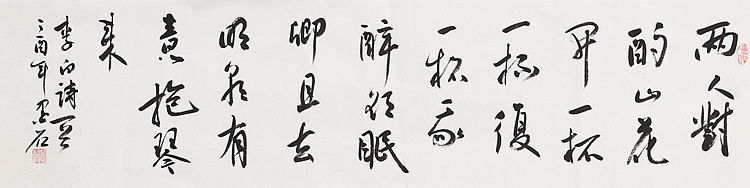 兩人對
酌山花
开一杯
一杯復
一杯我
醉欲眠
卿且去
明朝有
意抱琴
来
李白詩
酉年